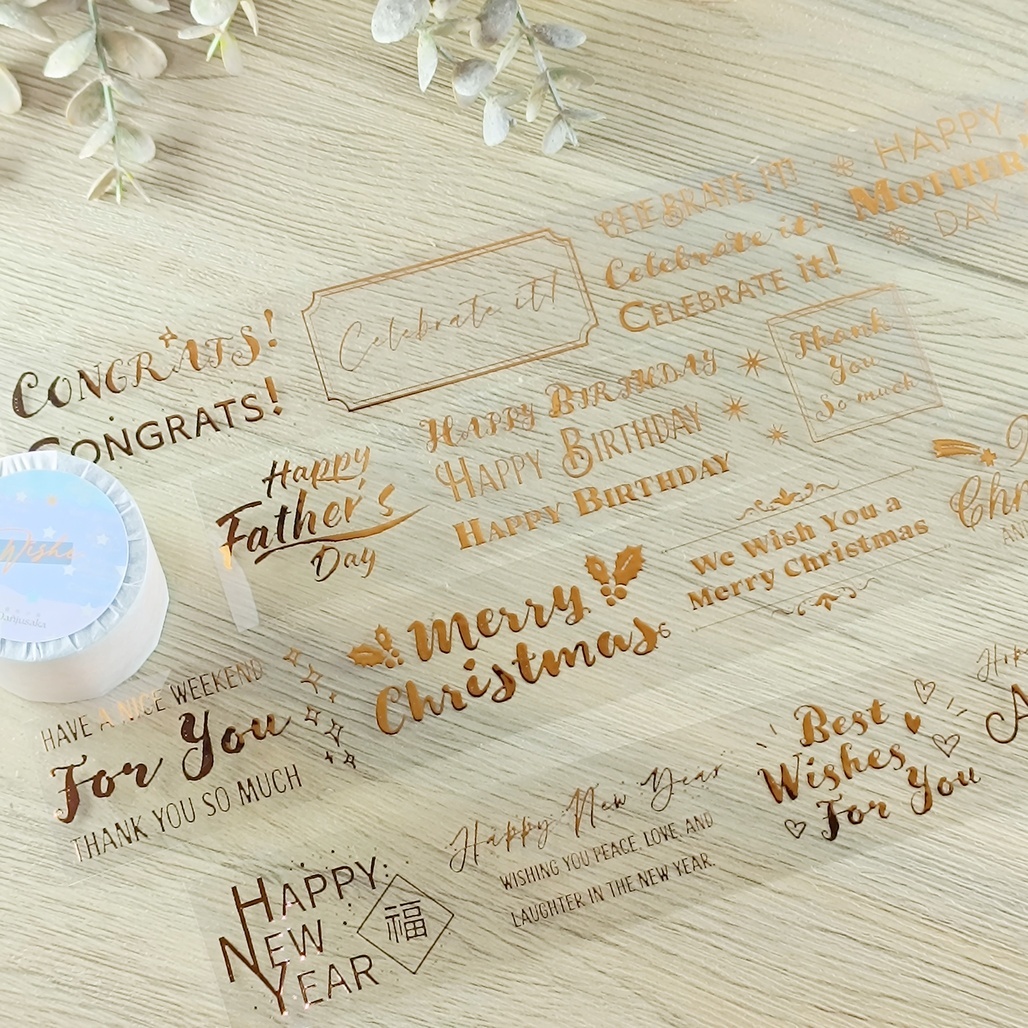 HAPPY
MOTHER'
DAY
CELEBRATE IT!
Celebrate it!
CELEBRATE it!
Celebrate it!
CONGRATS!
CONGRATS!
Thank
You
So much
HAPPY BIRTHDAY
HAPPY BIRTHDAY
HAPPY BIRTHDAY
Happy
Father's
Day
We Wish You a
Merry Christmas
Merry
Christmas
Wishe
HAVE A NICE WEEKEND
For You
THANK YOU SO MUCH
Best
Wishes
For You
Happy New Year
WISHING YOU PEACE, LOVE, AND
LAUGHTER IN THE NEW YEAR.
HAPPY
NEW
YEAR
福